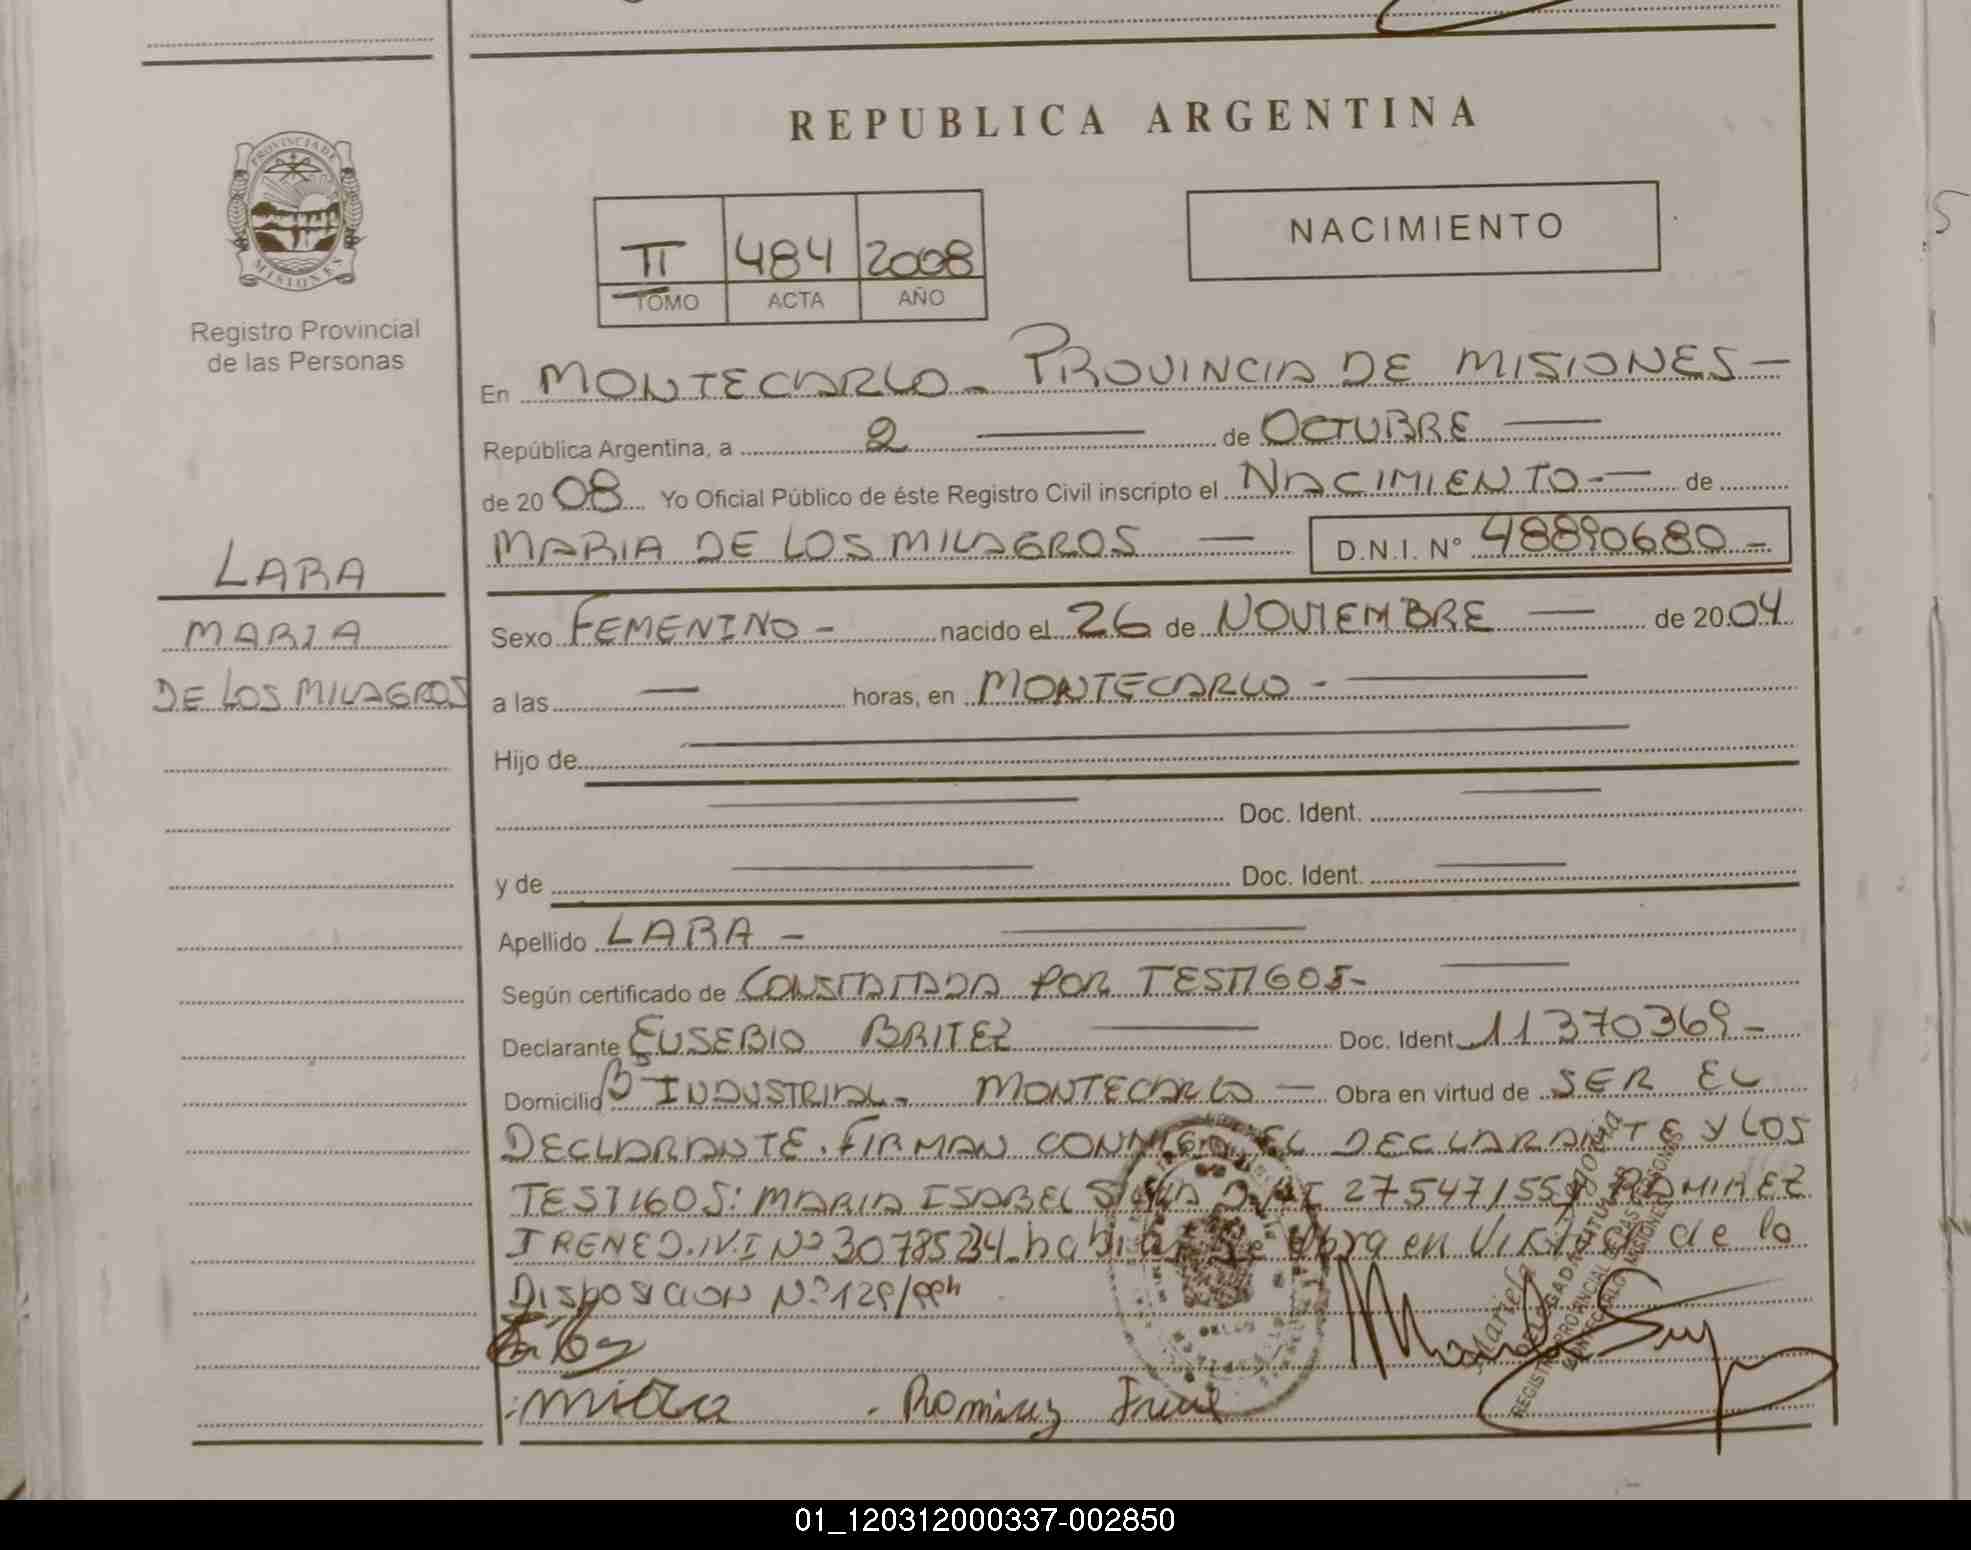 REPUBLICA ARGENTINA
PROVINCIA DE
MISIONES
Registro Provincial
de las Personas
II 484 2008
TOMO ACTA AÑO
NACIMIENTO
En MONTECARLO - PROVINCIA DE MISIONES -
República Argentina, a 2 de OCTUBRE
de 2008 Yo Oficial Público de éste Registro Civil inscripto el NACIMIENTO - de
MARIA DE LOS MILAGROS D.N.I. N° 48890680 -
LARA
MARIA
DE LOS MILAGROS
Sexo FEMENINO - nacido el 26 de NOVIEMBRE de 2004
a las — horas, en MONTECARLO -
Hijo de
Doc. Ident.
y de Doc. Ident.
Apellido LARA -
Según certificado de CONSTATADA POR TESTIGOS -
Declarante EUSEBIO BRITEZ Doc. Ident. 11370369 -
Domicilio B° INDUSTRIAL - MONTECARLO - Obra en virtud de SER EL
DECLARANTE. FIRMAN CONMIGO EL DECLARANTE Y LOS
TESTIGOS: MARIA ISABEL SILVA D.N.I 27547155 RAMIREZ
IRENE D.N.I Nº 30785234 Obra en Virtud de la
DISPOSICION Nº 129/
Ramirez Irene
REGISTRO PROVINCIAL DE LAS PERSONAS
MONTECARLO - MISIONES
01_120312000337-002850